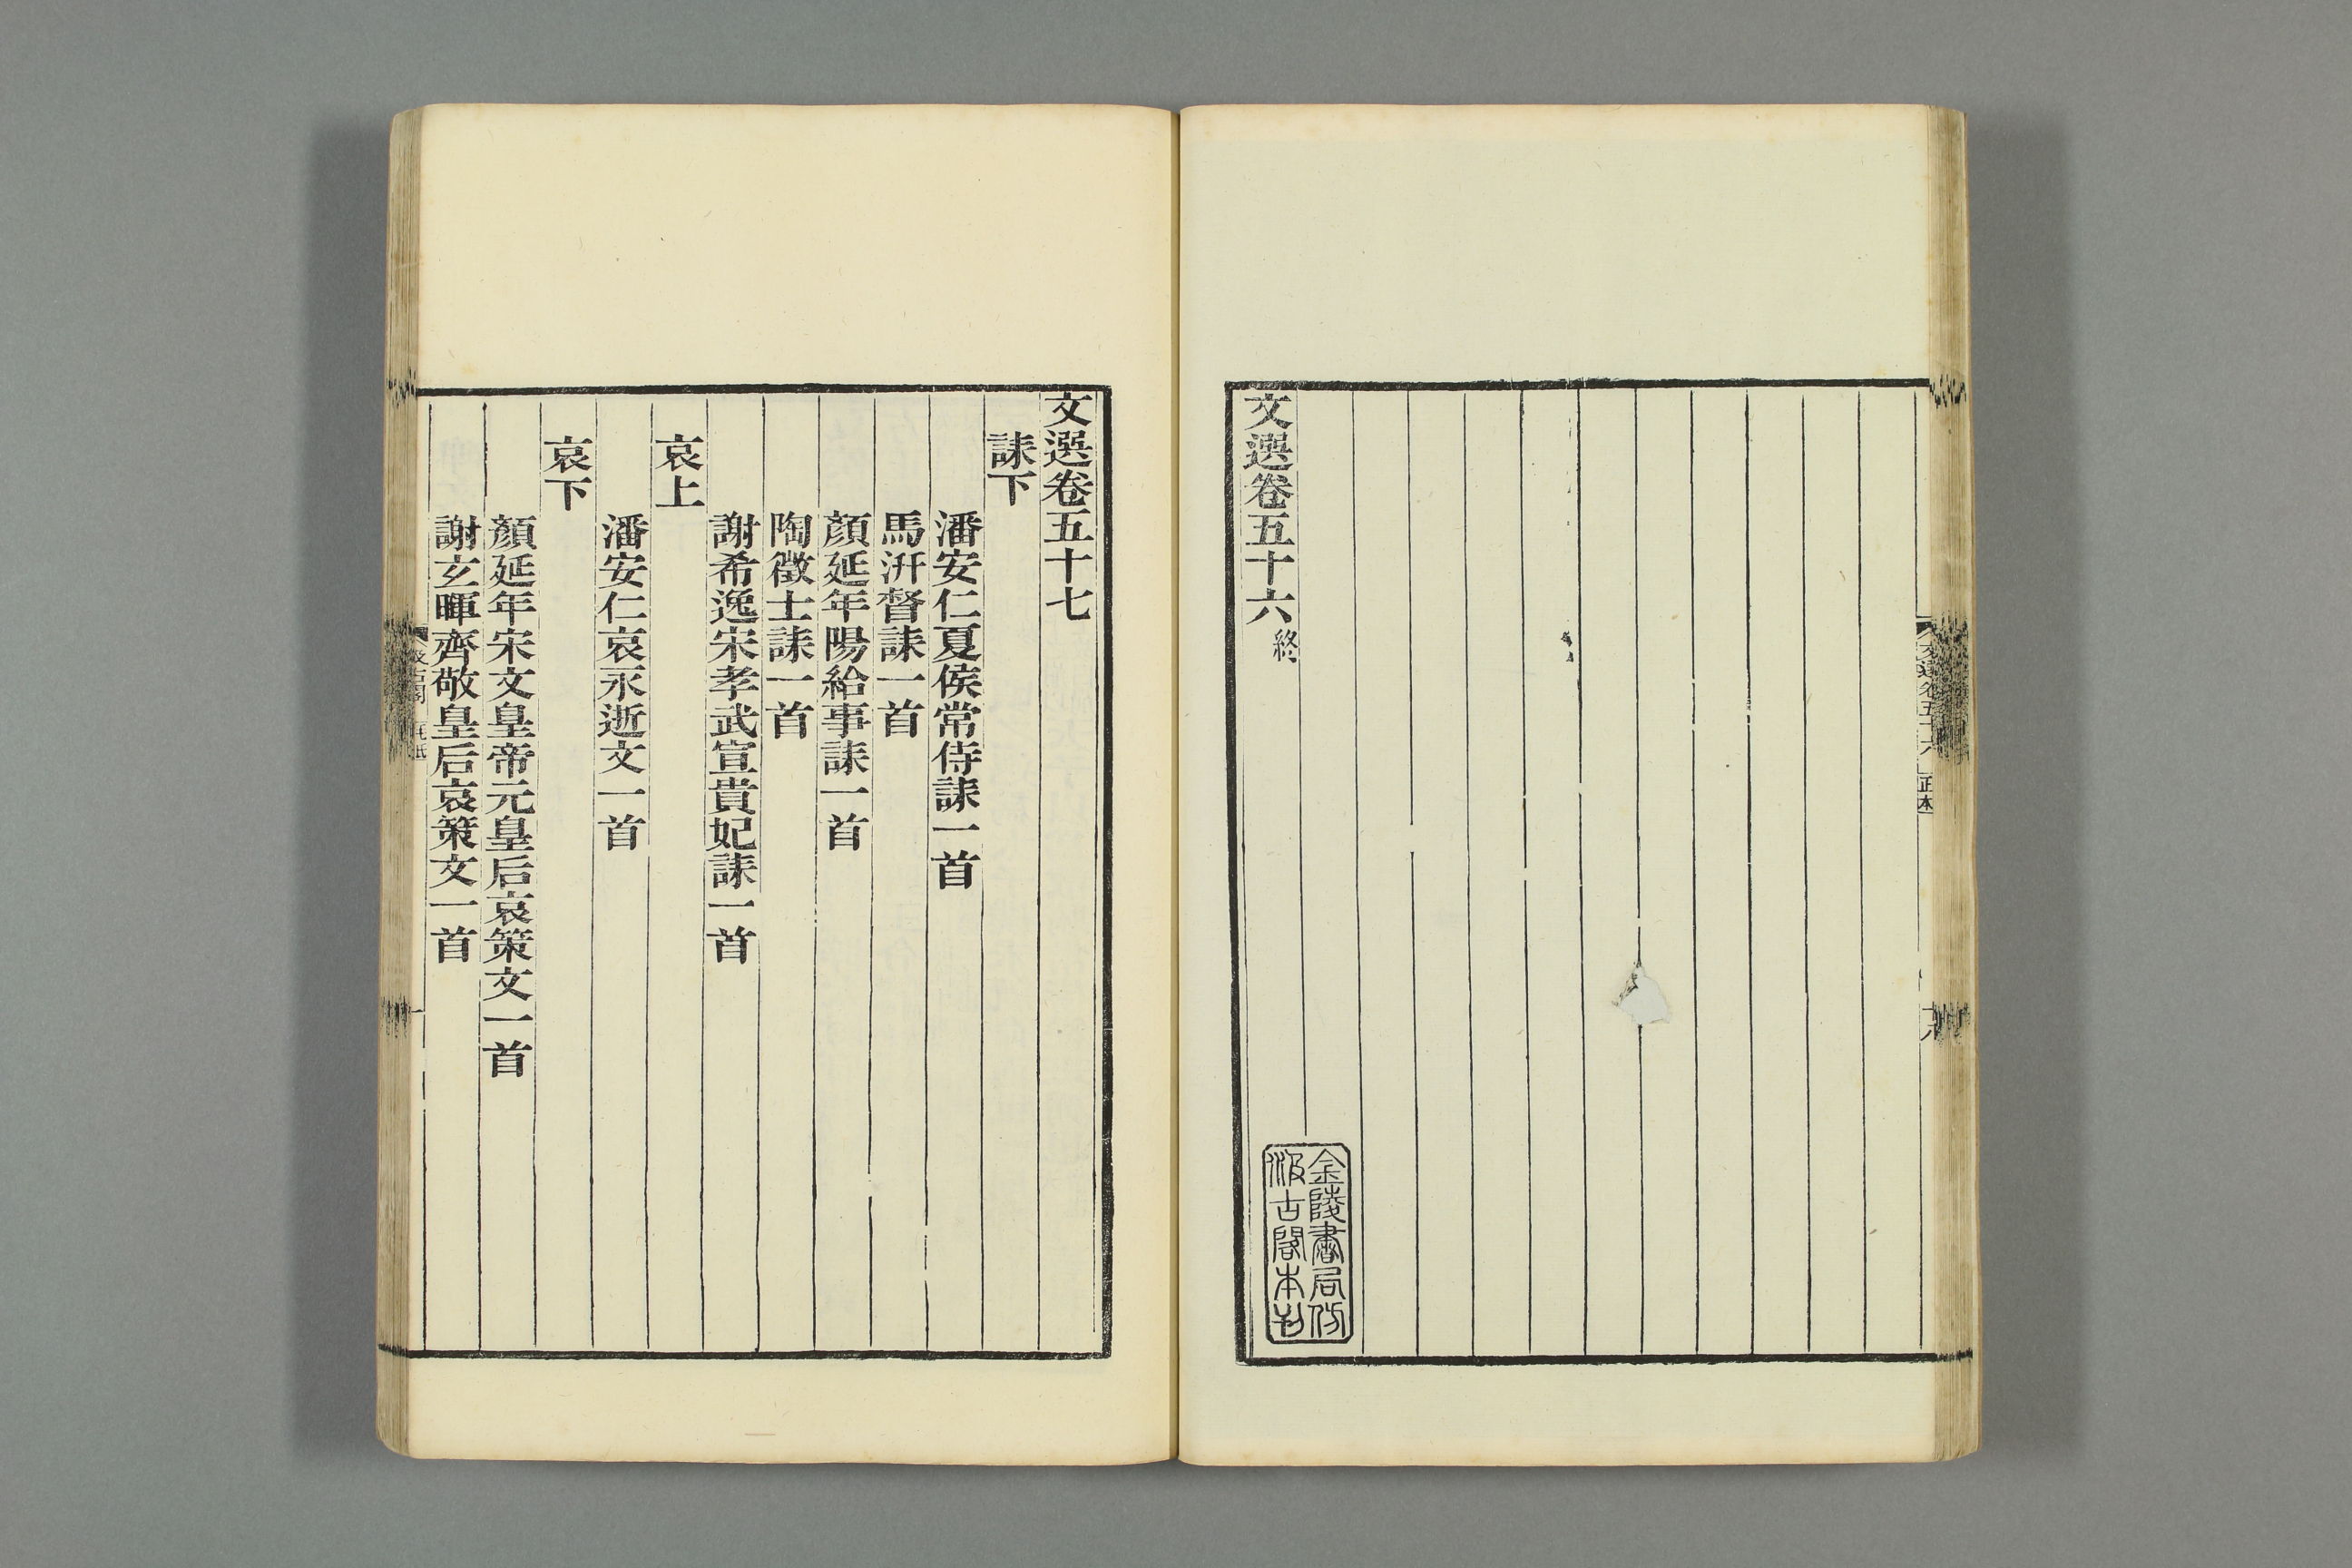 文選卷五十六終
金陵書局仿
汲古閣本刊
文選卷五十七
誄下
潘安仁夏侯常侍誄一首
馬汧督誄一首
顏延年陽給事誄一首
陶徵士誄一首
謝希逸宋孝武宣貴妃誄一首
哀上
潘安仁哀永逝文一首
哀下
顏延年宋文皇帝元皇后哀策文一首
謝玄暉齊敬皇后哀策文一首